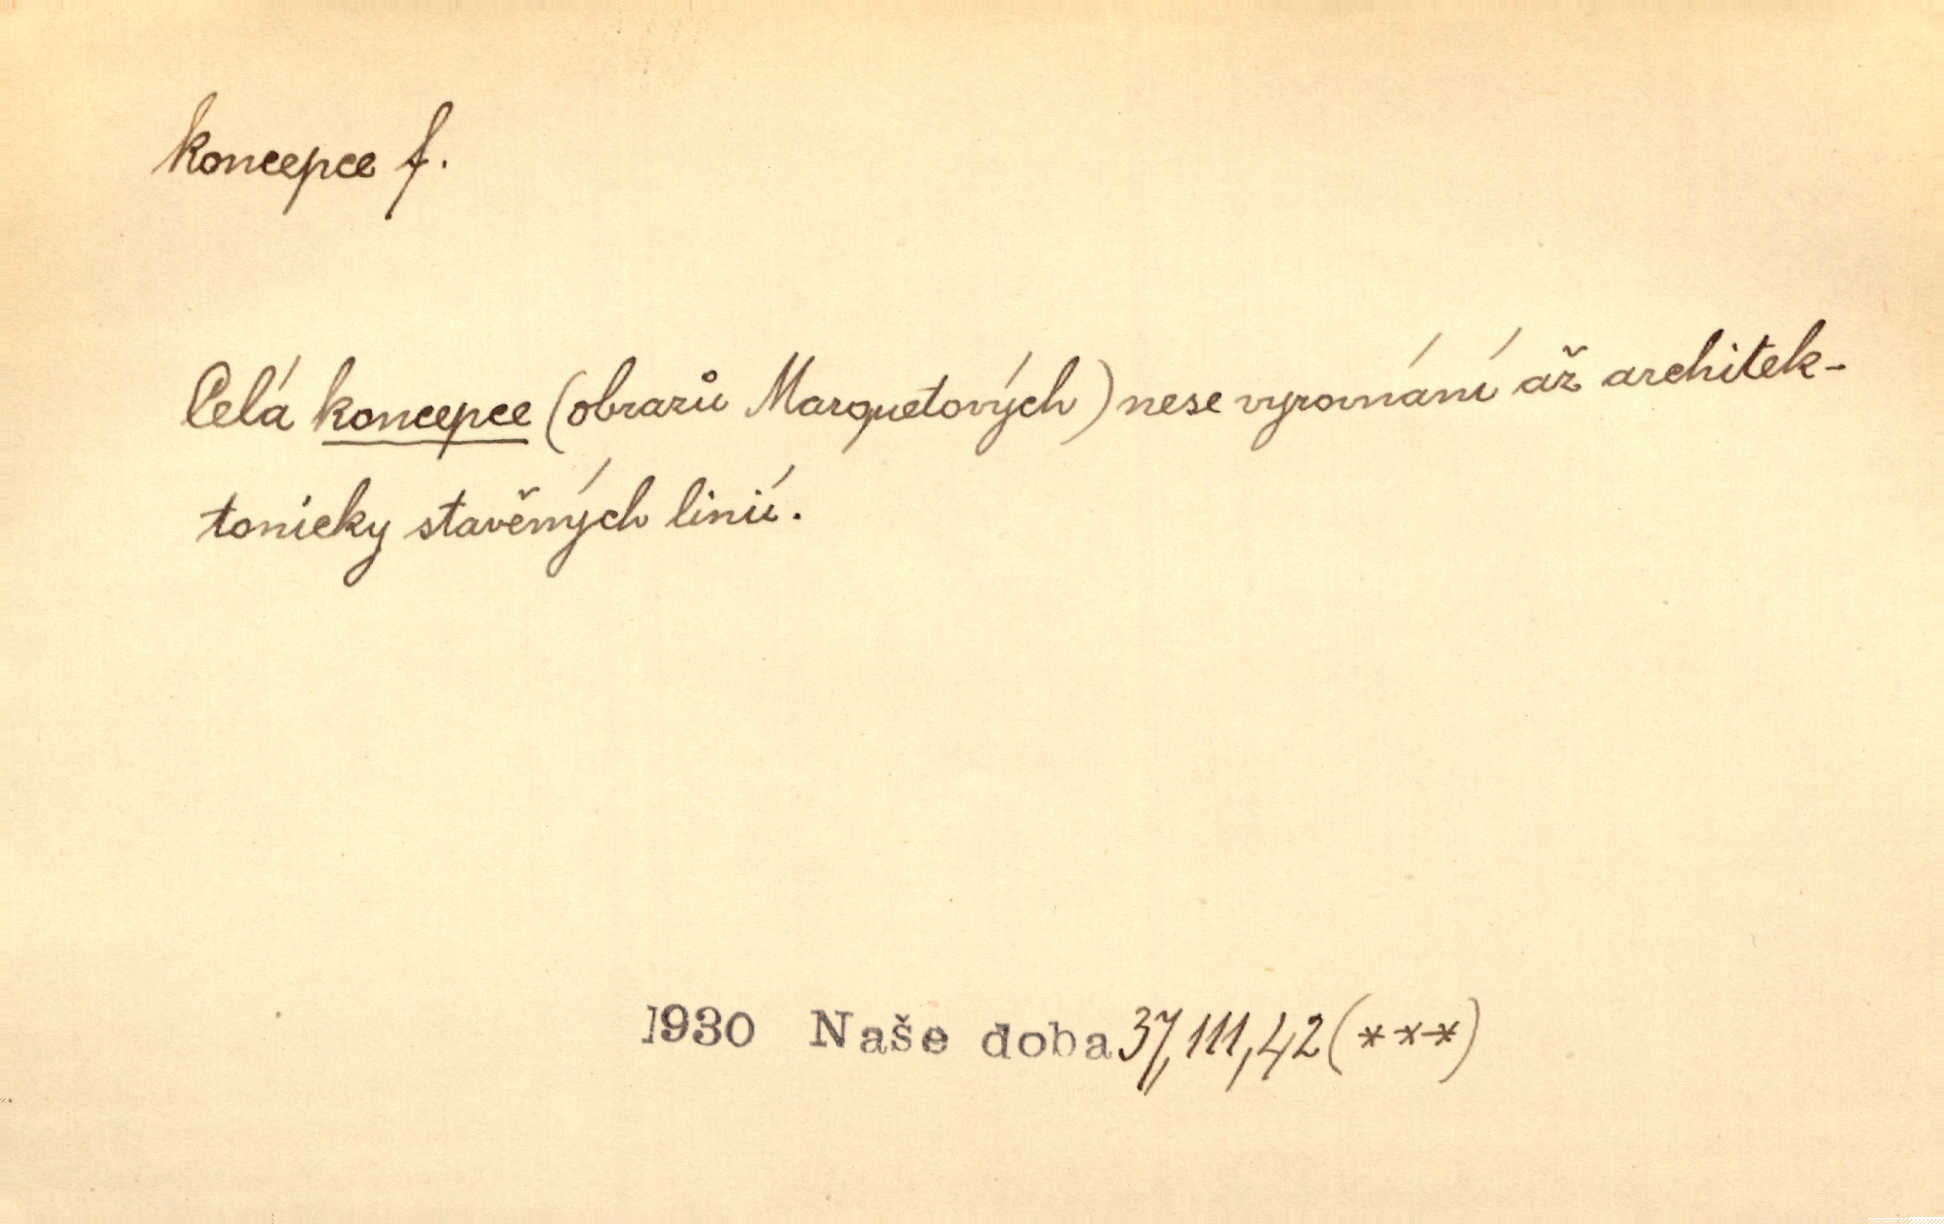 koncepce f.
Celá koncepce (obrazů Marquetových) nese vyrovnání až architek-
tonicky stavěných linií.
1930 Naše doba 37, 111, 42 (***)